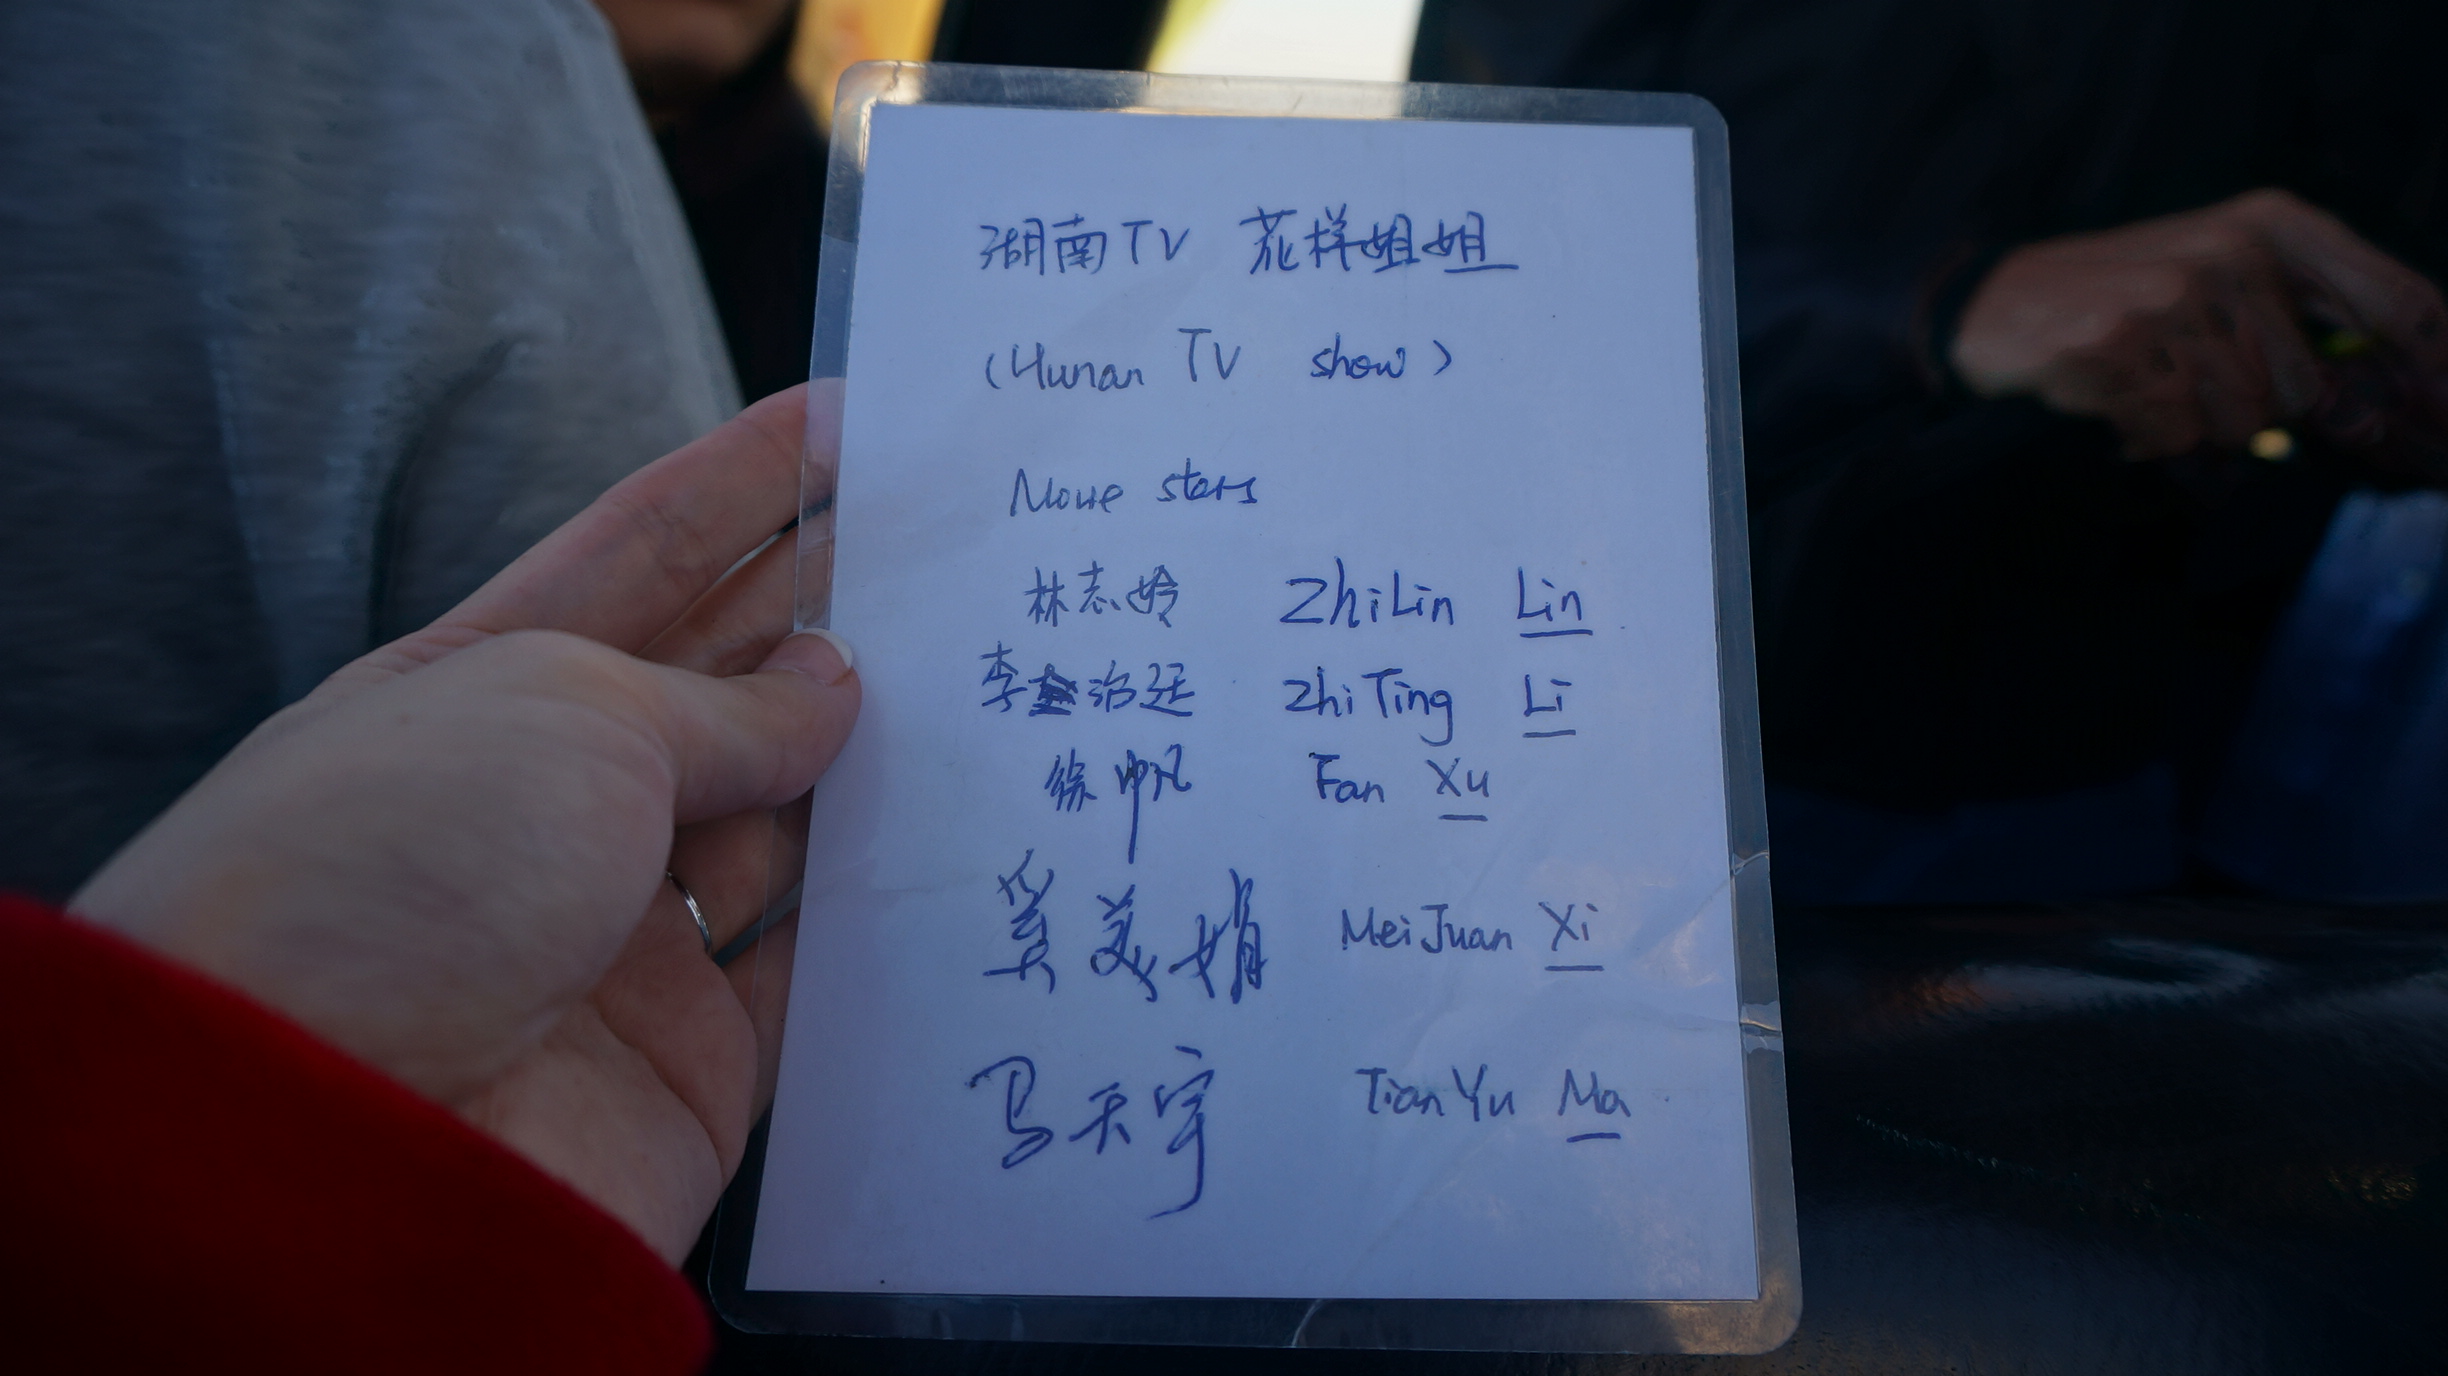 湖南TV 花样姐姐
(Hunan TV show)
Movie stars
林志玲 ZhiLin Lin
李治廷 ZhiTing Li
徐帆 Fan Xu
奚美娟 MeiJuan Xi
马天宇 TianYu Ma